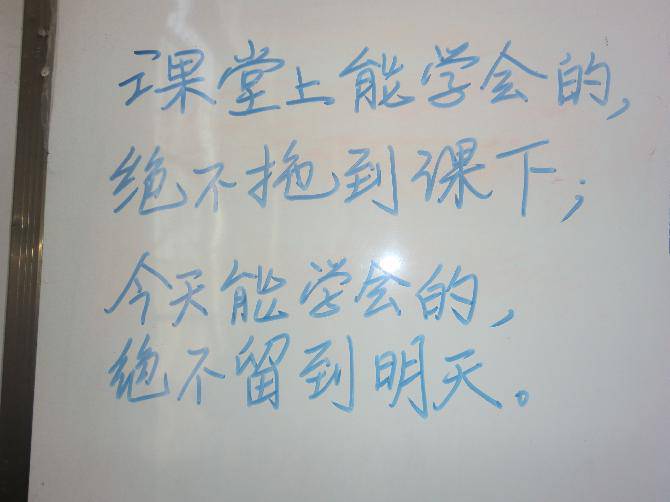 课堂上能学会的,
绝不拖到课下;
今天能学会的,
绝不留到明天。